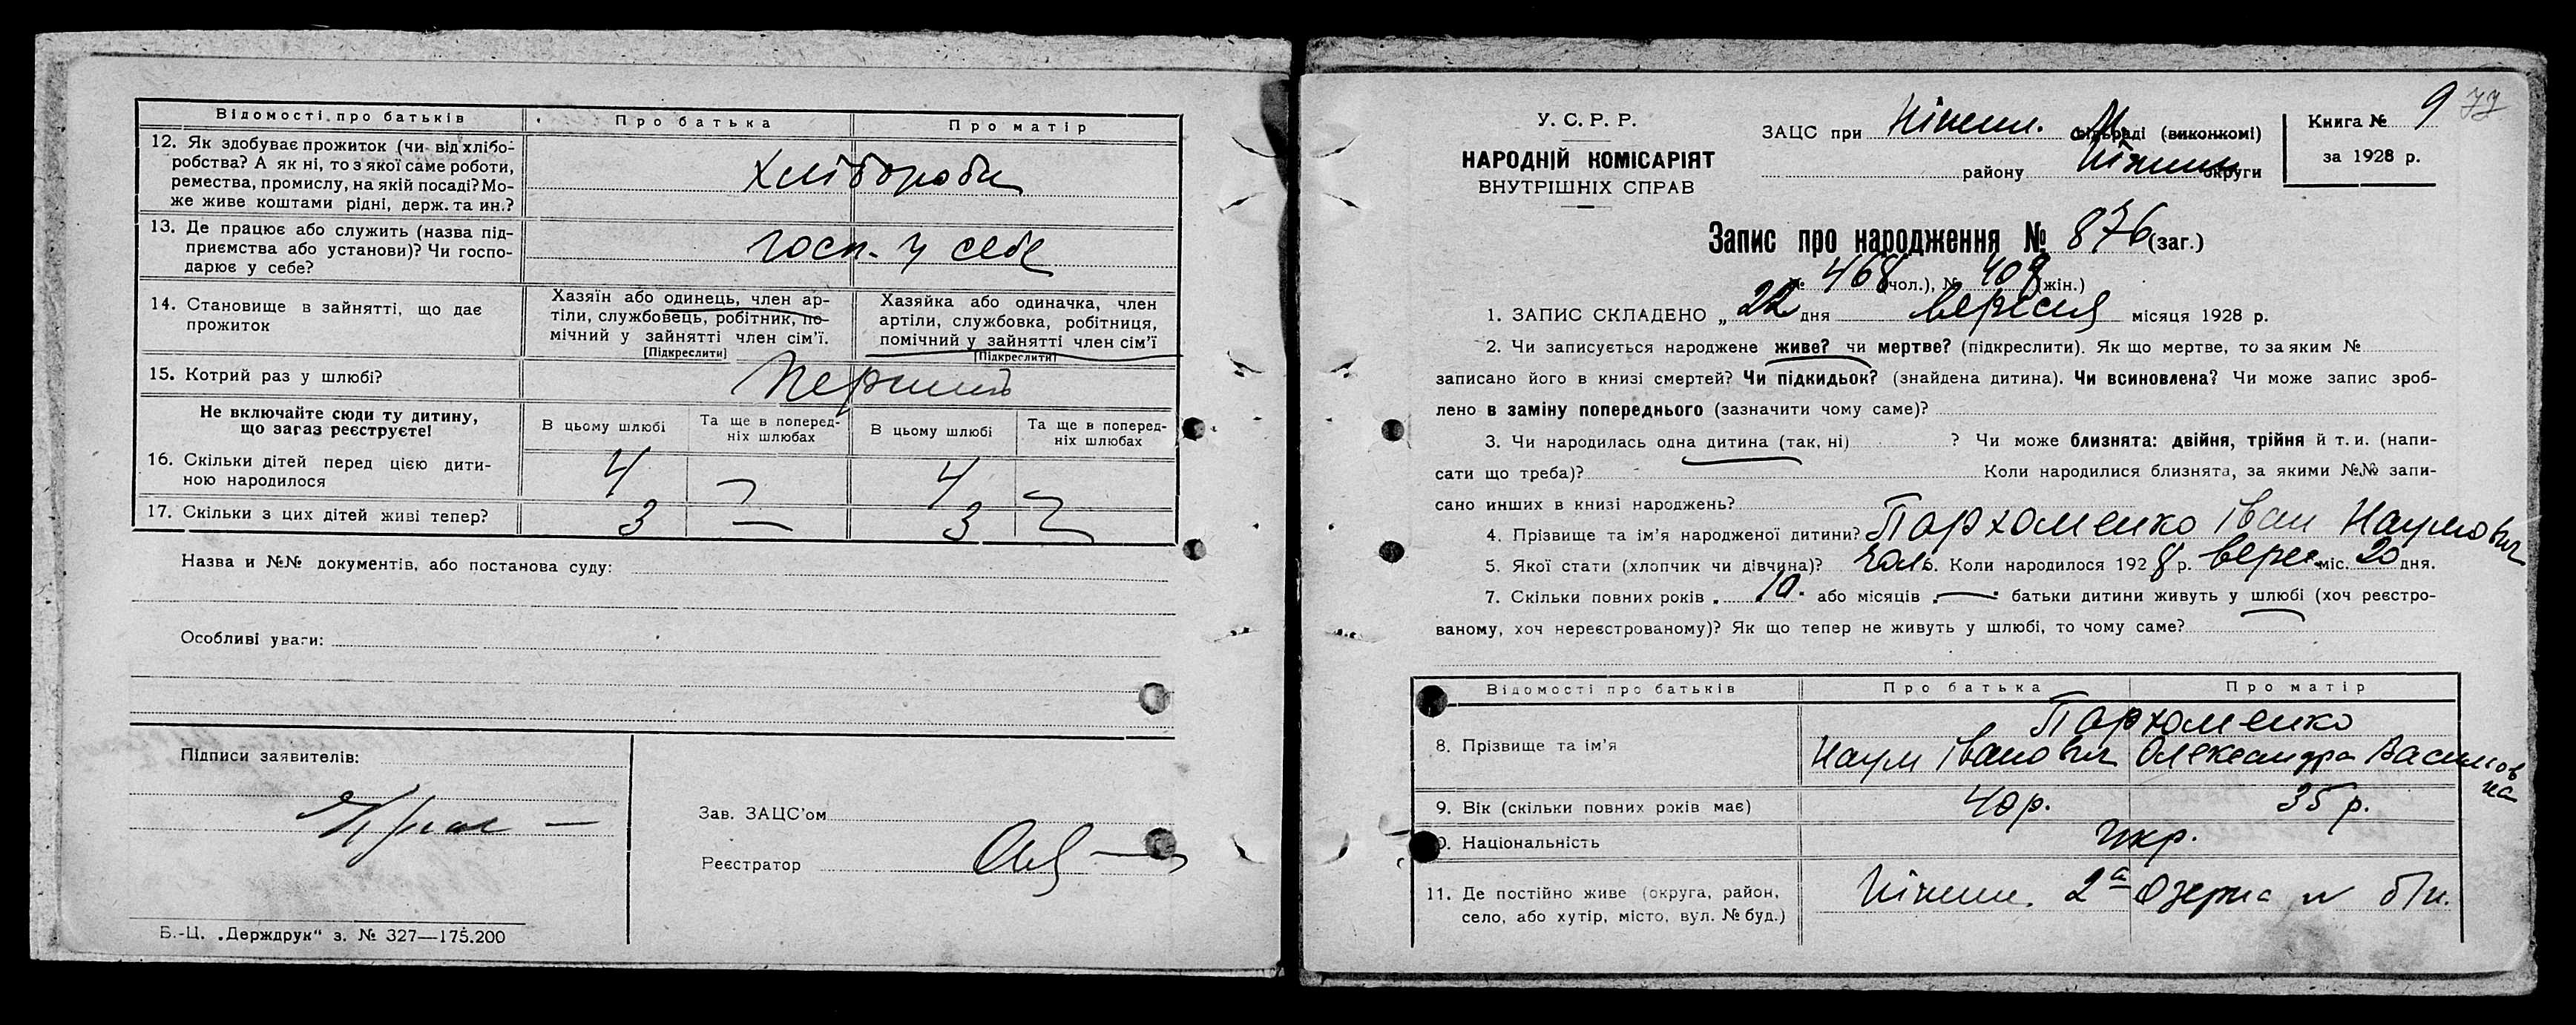 Відомості про батьків Про батька Про матір
12. Як здобуває прожиток (чи від хлібо-
робства? А як ні, то з якої саме роботи,
ремества, промислу, на якій посаді? Мо-
же живе коштами рідні, держ. та ин.?
Хлібороби
13. Де працює або служить (назва під-
приємства або установи)? Чи госпо-
дарює у себе?
госп. у себе
14. Становище в зайнятті, що дає
прожиток
Хазяїн або одинець, член ар-
тіли, службовець, робітник, по-
мічний у зайнятті член сім'ї.
[Підкреслити]
Хазяйка або одиначка, член
артіли, службовка, робітниця,
помічний у зайнятті член сім'ї
[Підкреслити]
15. Котрий раз у шлюбі? Перший
Не включайте сюди ту дитину,
що зараз реєструєте!
В цьому шлюбі
Та ще в поперед-
ніх шлюбах
В цьому шлюбі
Та ще в поперед-
ніх шлюбах
16. Скільки дітей перед цією дити-
ною народилося
4 — 4 —
17. Скільки з цих дітей живі тепер? 3 — 3 —
Назва и №№ документів, або постанова суду:
Особливі уваги:
Підписи заявителів:
Зав. ЗАЦС'ом
Реєстратор
Б.-Ц. „Держдрук" з. № 327—175.200
У. С. Р. Р.
НАРОДНІЙ КОМІСАРІЯТ
ВНУТРІШНІХ СПРАВ
ЗАЦС при Ніжин. М. сільраді (виконкомі)
району Ніжин округи
Книга № 9
за 1928 р.
77
Запис про народження № 876 (заг.)
№ 468 (чол.), № 408 (жін.)
1. ЗАПИС СКЛАДЕНО „ 22 дня вересня місяця 1928 р.
2. Чи записується народжене живе? чи мертве? (підкреслити). Як що мертве, то за яким №
записано його в книзі смертей? Чи підкидьок? (знайдена дитина). Чи всиновлена? Чи може запис зроб-
лено в заміну попереднього (зазначити чому саме)?
3. Чи народилась одна дитина (так, ні) ? Чи може близнята: двійня, трійня й т. и. (напи-
сати що треба)? Коли народилися близнята, за якими №№ запи-
сано инших в книзі народжень?
4. Прізвище та ім'я народженої дитини? Пархоменко Іван Наумович
5. Якої стати (хлопчик чи дівчина)? Чол. Коли народилося 1928 р. верес. міс. 20 дня.
7. Скільки повних років „ 10 " або місяців „ — " батьки дитини живуть у шлюбі (хоч реєстро-
ваному, хоч нереєстрованому)? Як що тепер не живуть у шлюбі, то чому саме?
Відомості про батьків Про батька Про матір
8. Прізвище та ім'я
Пархоменко
Наум Іванович Олександра Василовна
9. Вік (скільки повних років має) 40 р. 35 р.
10. Національність Укр.
11. Де постійно живе (округа, район,
село, або хутір, місто, вул. № буд.)
Ніжин. 2а Озерна № б/н.